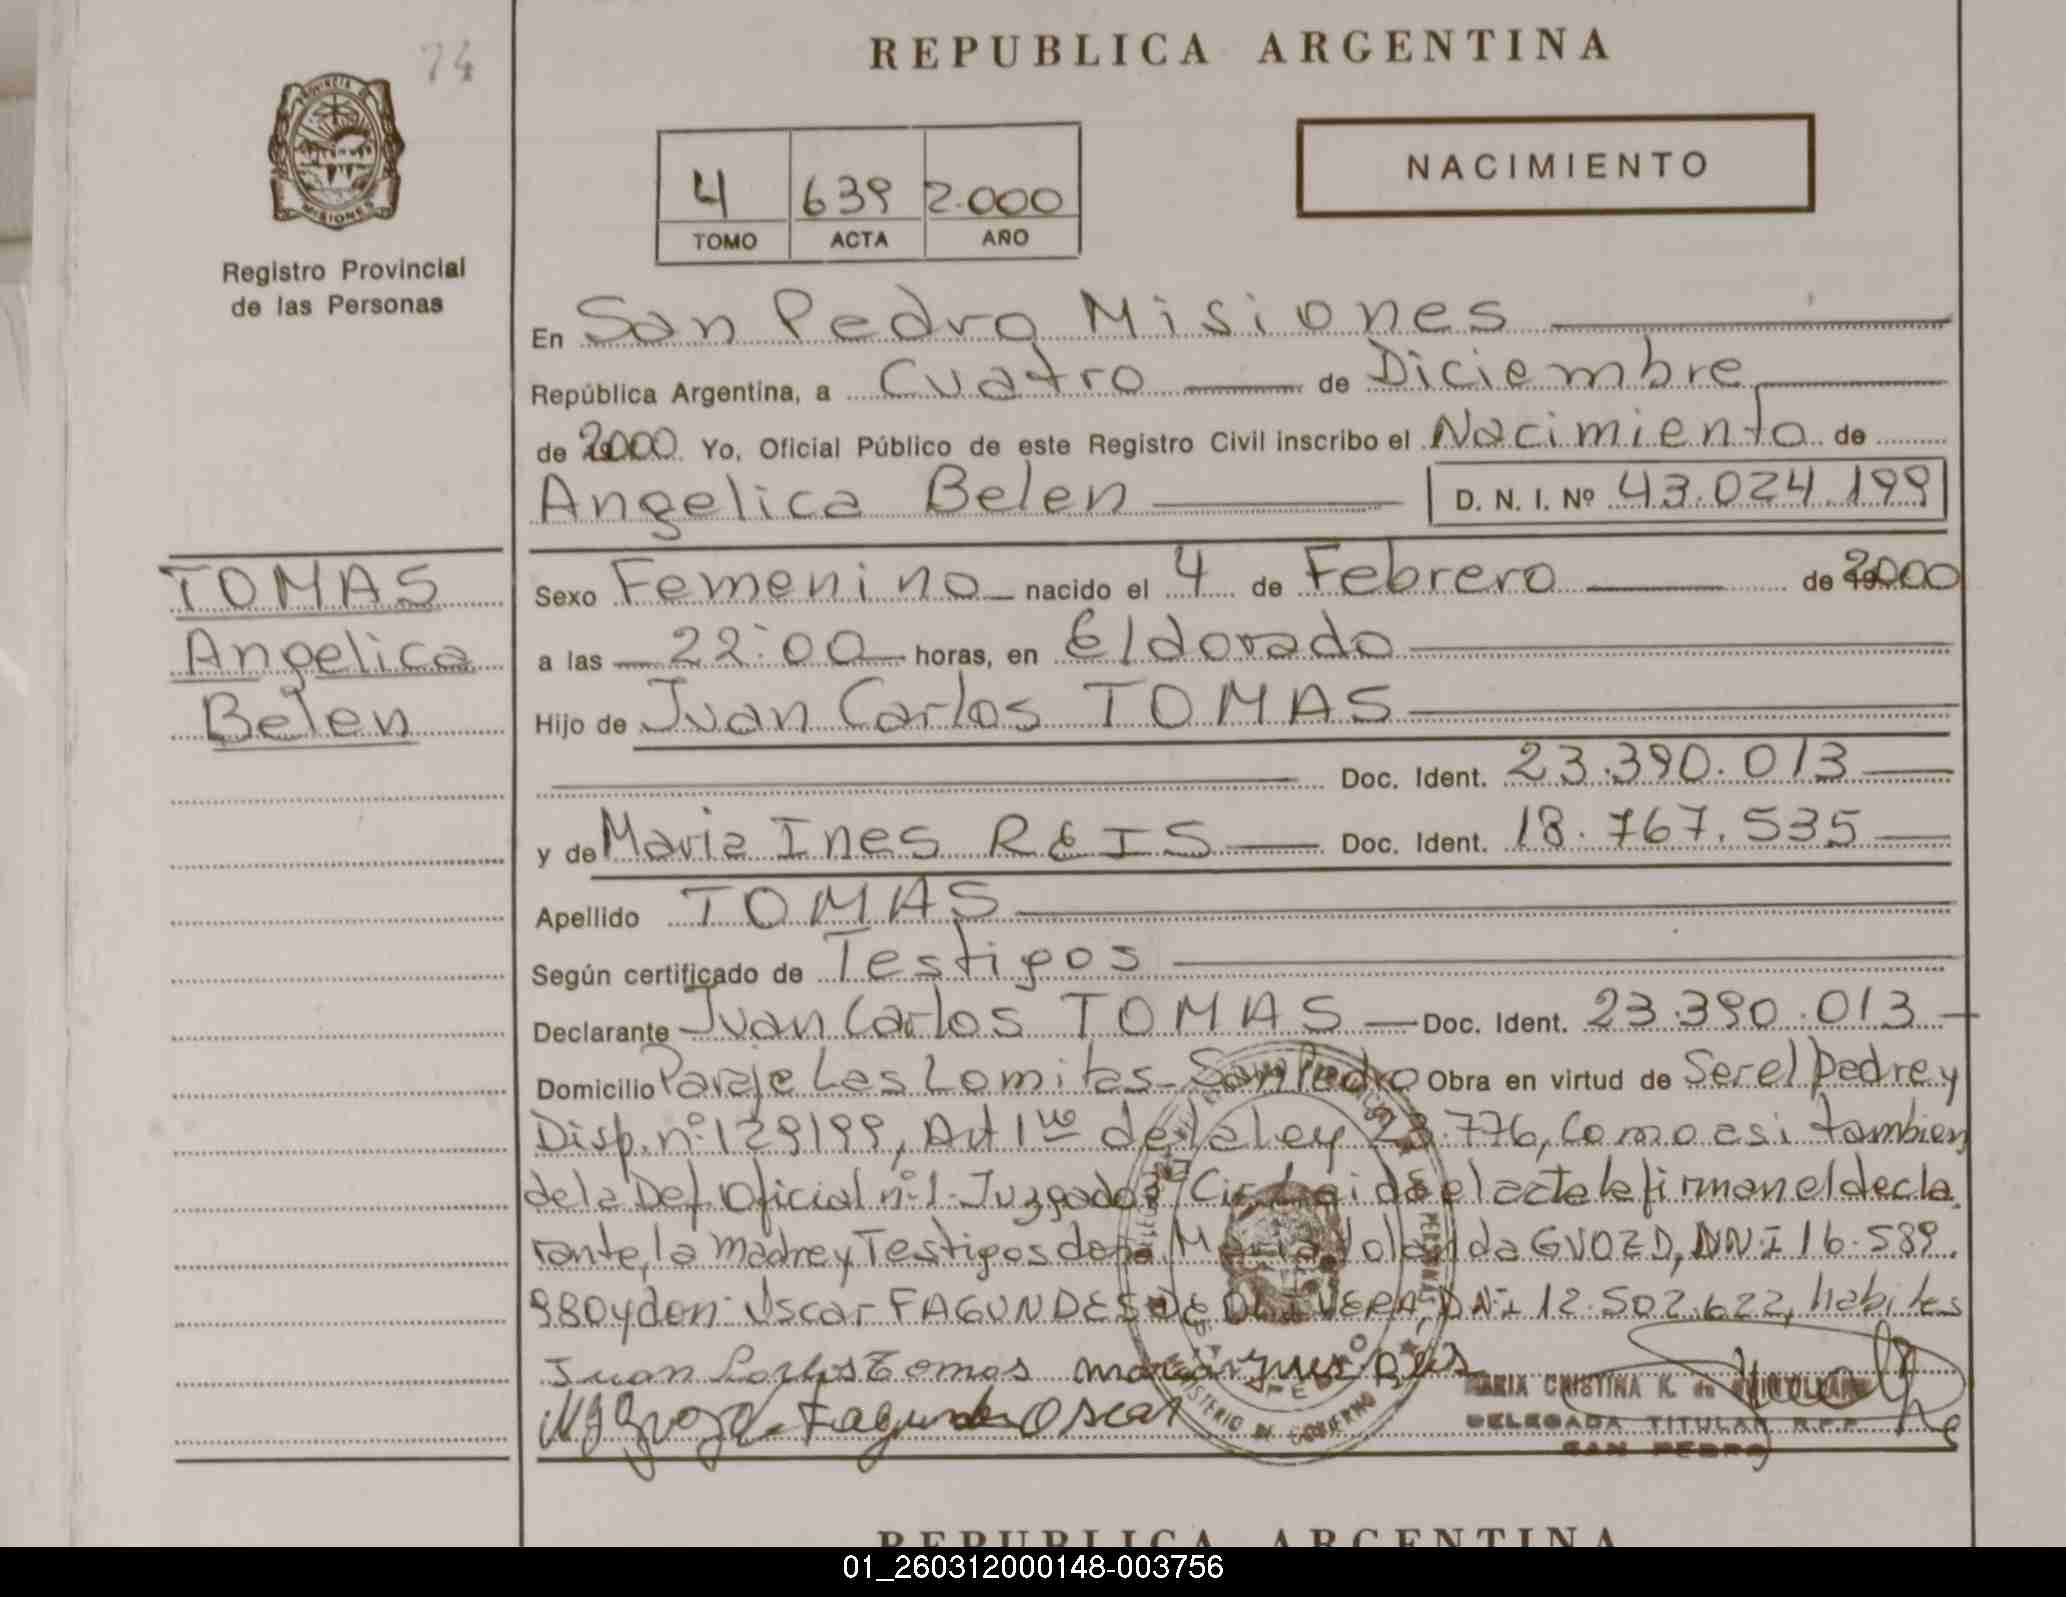 74
REPUBLICA ARGENTINA
PROVINCIA DE
MISIONES
Registro Provincial
de las Personas
4 639 2.000
TOMO ACTA AÑO
NACIMIENTO
En San Pedro Misiones
República Argentina, a Cuatro de Diciembre
de 2000 Yo, Oficial Público de este Registro Civil inscribo el Nacimiento de
Angelica Belen D. N. I. Nº 43.024.199
TOMAS
Angelica
Belen
Sexo Femenino nacido el 4 de Febrero de 2000
a las 22:00 horas, en Eldorado
Hijo de Juan Carlos TOMAS
Doc. Ident. 23.390.013
y de Maria Ines REIS Doc. Ident. 18.767.535
Apellido TOMAS
Según certificado de Testigos
Declarante Juan Carlos TOMAS Doc. Ident. 23.390.013
Domicilio Paraje Las Lomitas - San Pedro Obra en virtud de Ser el padre y
Disp. nº 129199, Art 1º de la ley 23.776, Como asi tambien
de la Def. Oficial nº 1. Juzgado leida el acta la firman el decla
rante, la madre y Testigos doña Maria Yolanda GVOZD, DNI 16.589.
980 y don Oscar FAGUNDES DE OLIVERA, DNI 12.502.622, habiles
Juan Carlos Tomas Maria Ynes Reis
Fagundes Oscar
MARIA CRISTINA K. de
DELEGADA TITULAR R.P.P.
SAN PEDRO
MINISTERIO DE GOBIERNO
REPUBLICA ARGENTINA
01_260312000148-003756